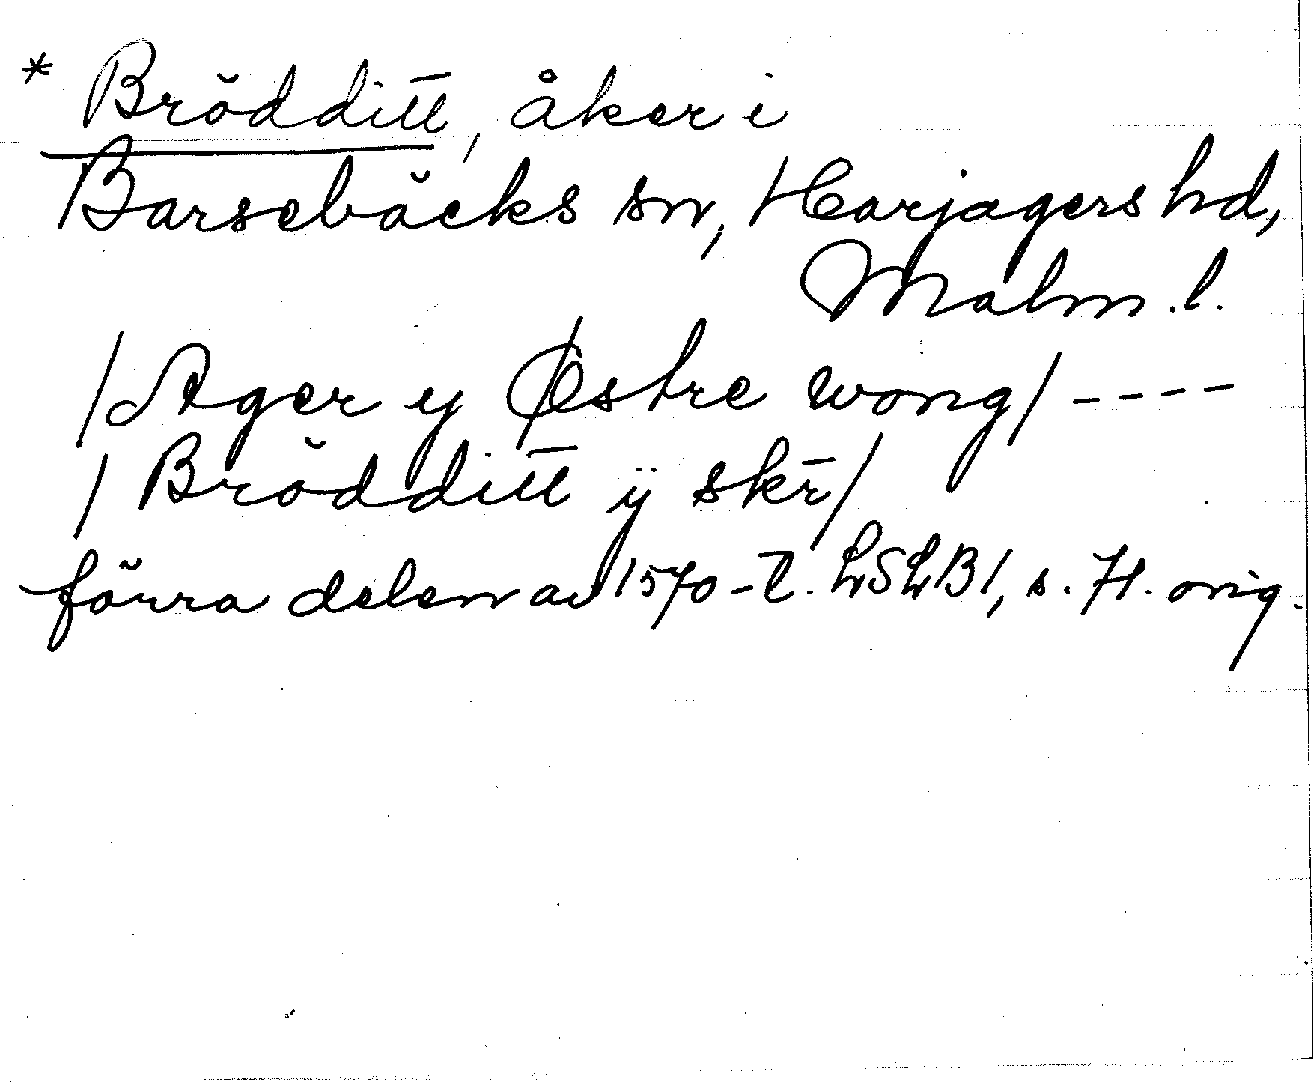 * Brödditt, åker i
Barsebäcks sn, Harjagers hd,
Malm. l.
/Ager y Østre wong/ ----
/ Brödditt ÿ skr̄/
förra delen av 1570-t. LSLB1, s. 71. orig.